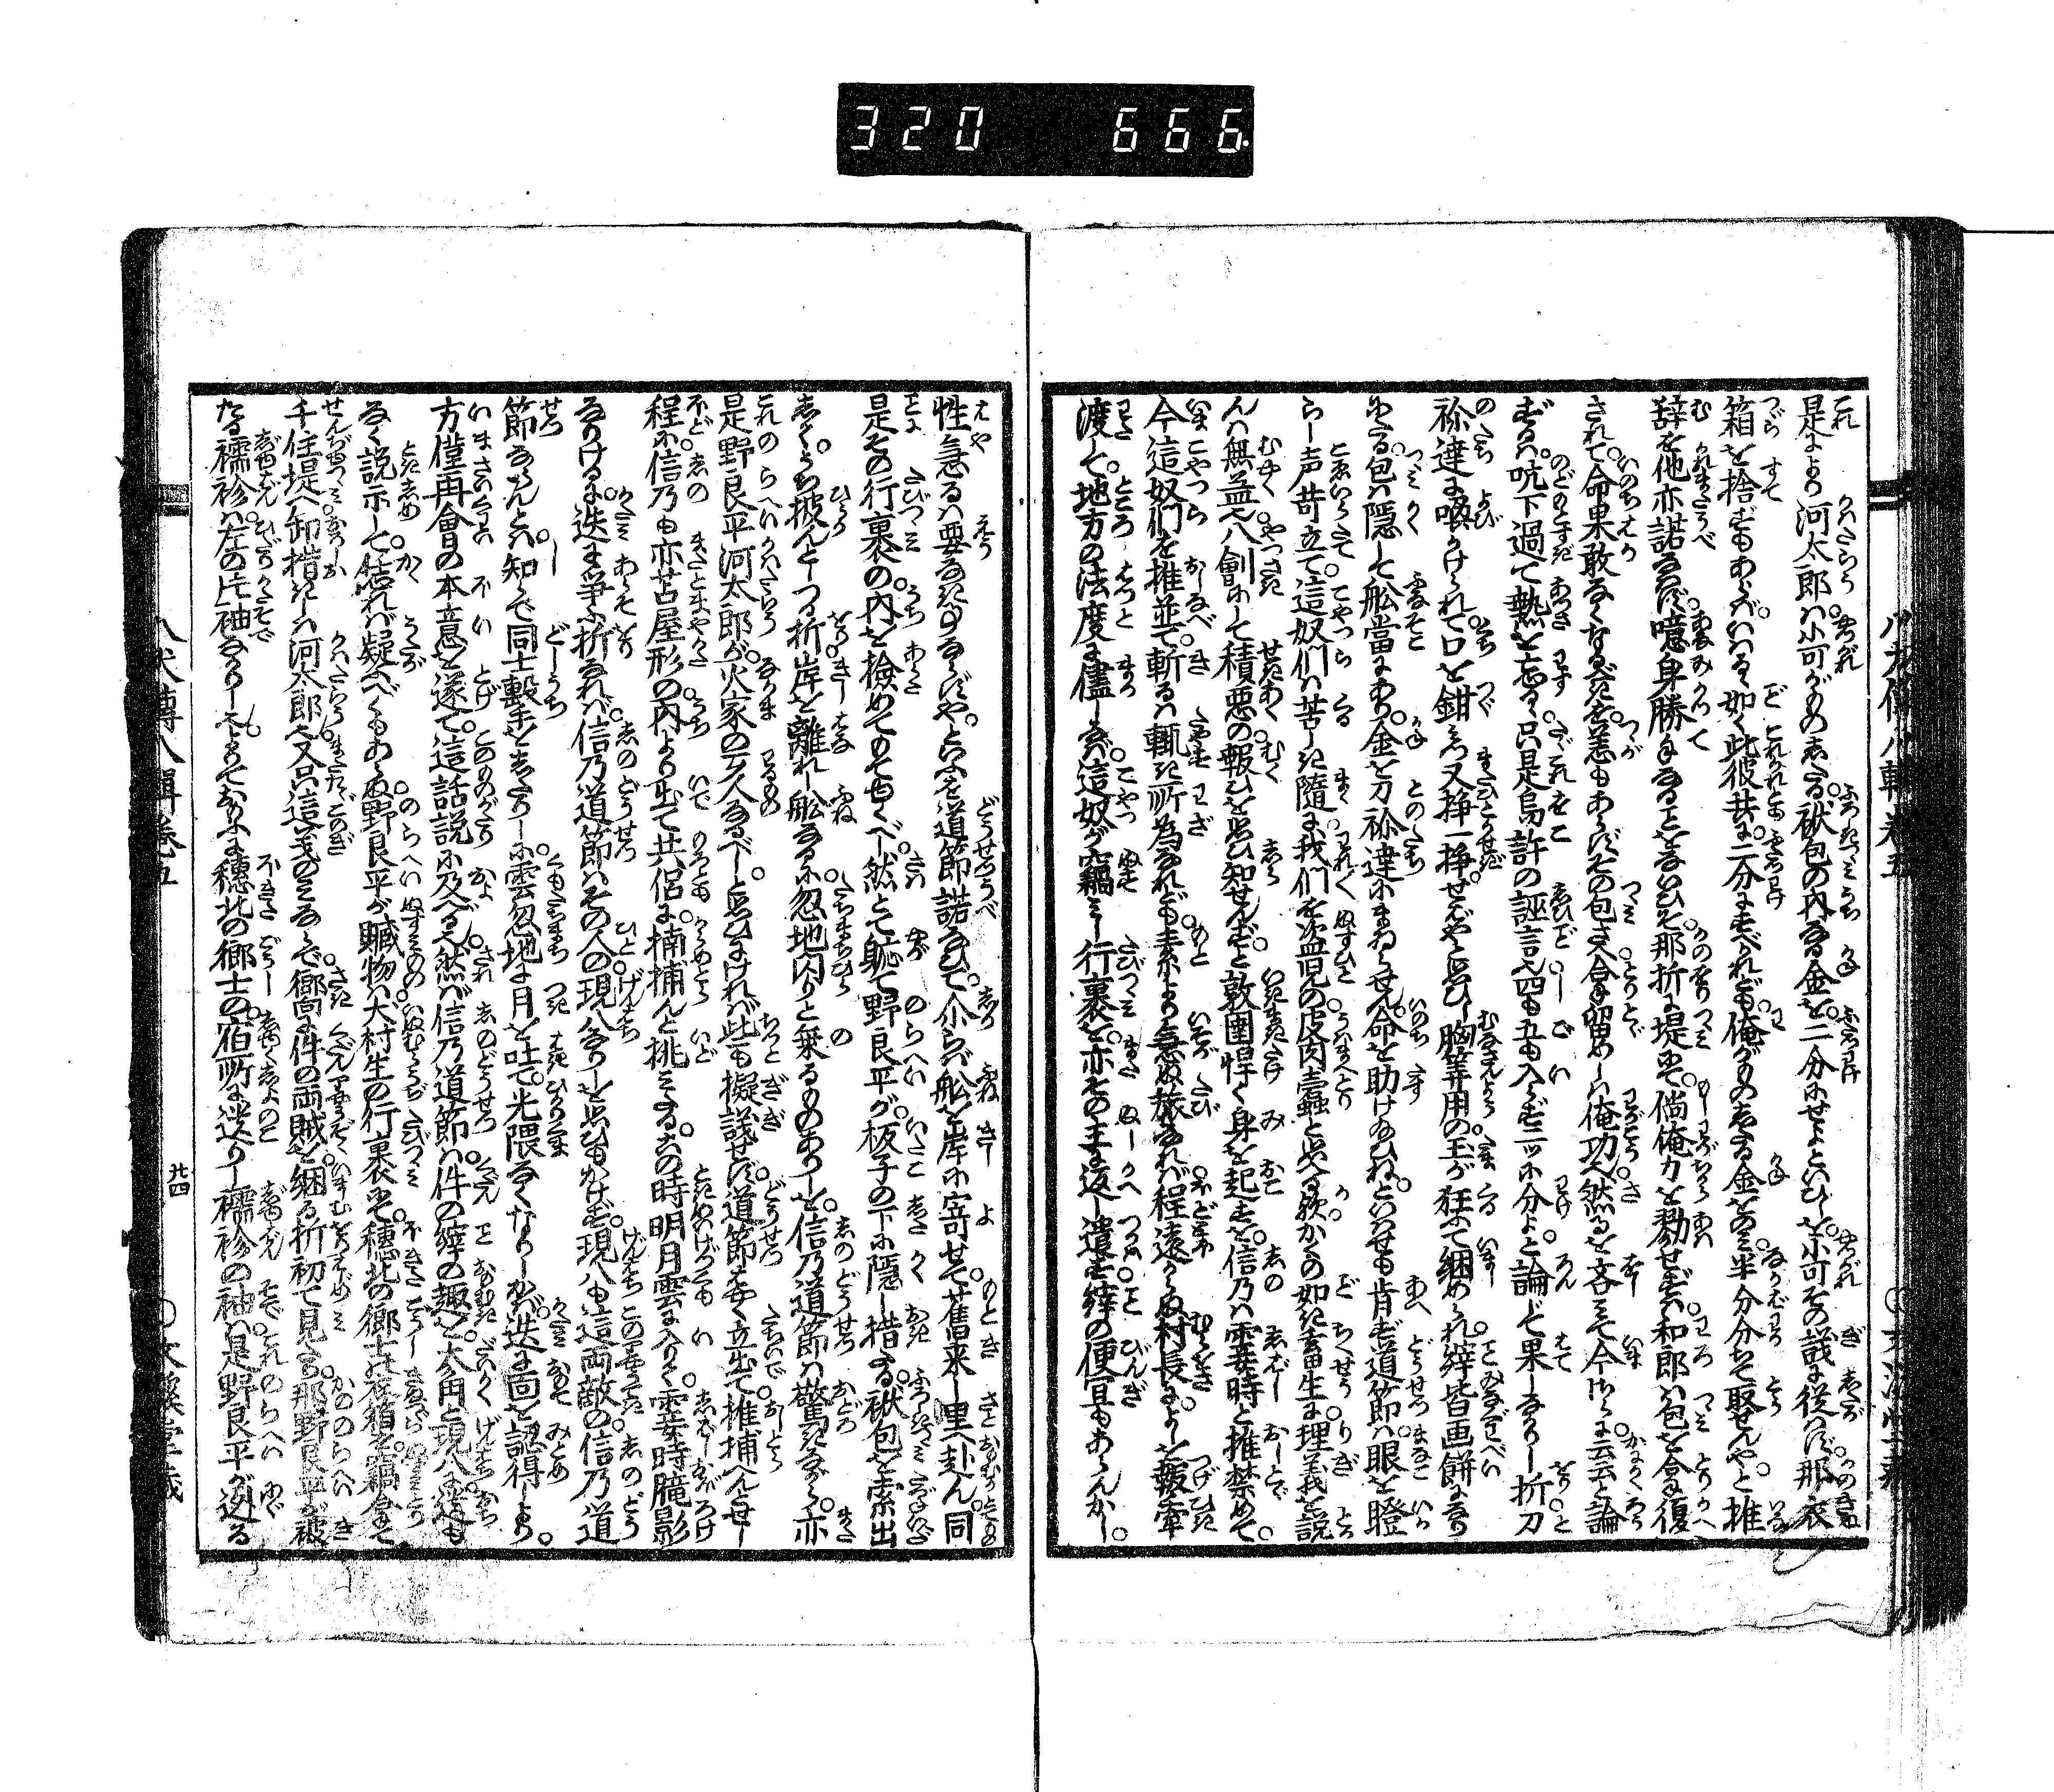 320 666
是により河太郎は小可がものしたる袱包の内なる金を。二分にせよといひしを。小可その議に従はず。那衣
箱を捨ずもあらば。いはるゝ如く此彼共に二分にすべけれども。俺がものしたる金をのみ半分分ちて取せんや。と推
辞を他亦諾なはず。噫身勝手なることをないひそ。那折に堤にて。倘俺力を勠せずは。和郎は包を舎に復
されて。命果敢なくなるべきを。恙もあらずその包さへ拿留めしは俺功也。然るを吝みて今さらに云云と論
ずるは。吭下過て熱を忘るゝ。只是烏許の誣言也。四も五も入らず二ッに分よ。と論じ果しなかりし折。刀
祢達に喚かけられて。口を鉗み又挣一挣せばやと思ひし。胸算用の玉が狂ふて綑められ。縡皆画餅になり
にたる。包は隠して舩當にあり。金を刀祢達にまゐらせん。命を助け給ひね。といはせも肯ず道節は。眼を瞪
らし声苛立て。這奴們は苦しき隨に。我們を盗児の皮肉蠧と思へる歟。かくの如き畜生に。理義を説
んは無益也。八劊にして積悪の。報ひを思ひ知せんず。と敦圉悍く身を起すを。信乃は霎時と推禁めて。
今這奴們を推並て。斬るは輙き所為なれども。素より急ぬ旅なれば。程遠からぬ村長に。よしを報牽
渡して。地方の法度に儘しなば。這奴が竊みし行裹を。亦その主に返し遣す。縡の便宜もあらんかし。
性急なるは要なき事ならずや。といふを道節諾なひて。尒らば舩を岸に寄せて。舊来し里へ赴ん。同
是その行裹の内を検めてのせゆくべし。然とて軈て野良平が。板子の下に隠し措たる。袱包を索出
しく。うち披んとしつる折。岸を離れし舩なるに。忽地閃りと乗るものありしを。信乃道節は驚きながら。亦
是野良平河太郎が。火家の歹人なるべし。と思ひにければ些も擬議せず。道節はやく立出て。推捕へんとせし
程に。信乃も亦苫屋形の内より出て共侶に。搦捕んと挑みたる。その時明月雲に入りて。霎時朧影
なりけるに。迭に争ふ折なれば。信乃道節はその人の。現八なりと思ひもかけず。現八も這両敵の。信乃道
節ならんとは知らで。同士撃をしたりしに。雲忽地に月を吐て。光隈なくなりしかば。迭に面を認得しより。
方僅再會の本意を遂て。這話説に及べる也。然ば信乃道節は。件の縡の趣を。大角と現八に。送も
なく説示して。恁れば疑ふべくもあらぬ。野良平が贓物は。犬村生の行裹にて。穂北の郷士の衣箱を。竊拿て
千住堤へ卸措きしは。河太郎也。又只這義のみならで。嚮に件の両賊を。綑る折初て見る。那野良平が被
たる襦袢は。左の片袖なかりし也。よりておもふに。穂北の郷士の。宿所に送りし襦袢の袖は。是野良平が逆る
八犬傳八輯卷五
廿四
文溪堂藏